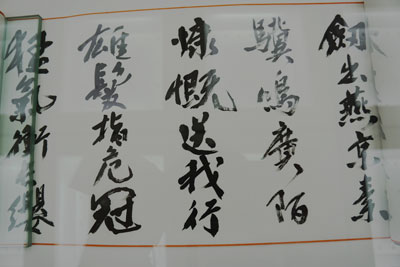 劒出燕京素
驥鳴廣陌
慷慨送我行
雄髮指危冠
猛氣衝長纓